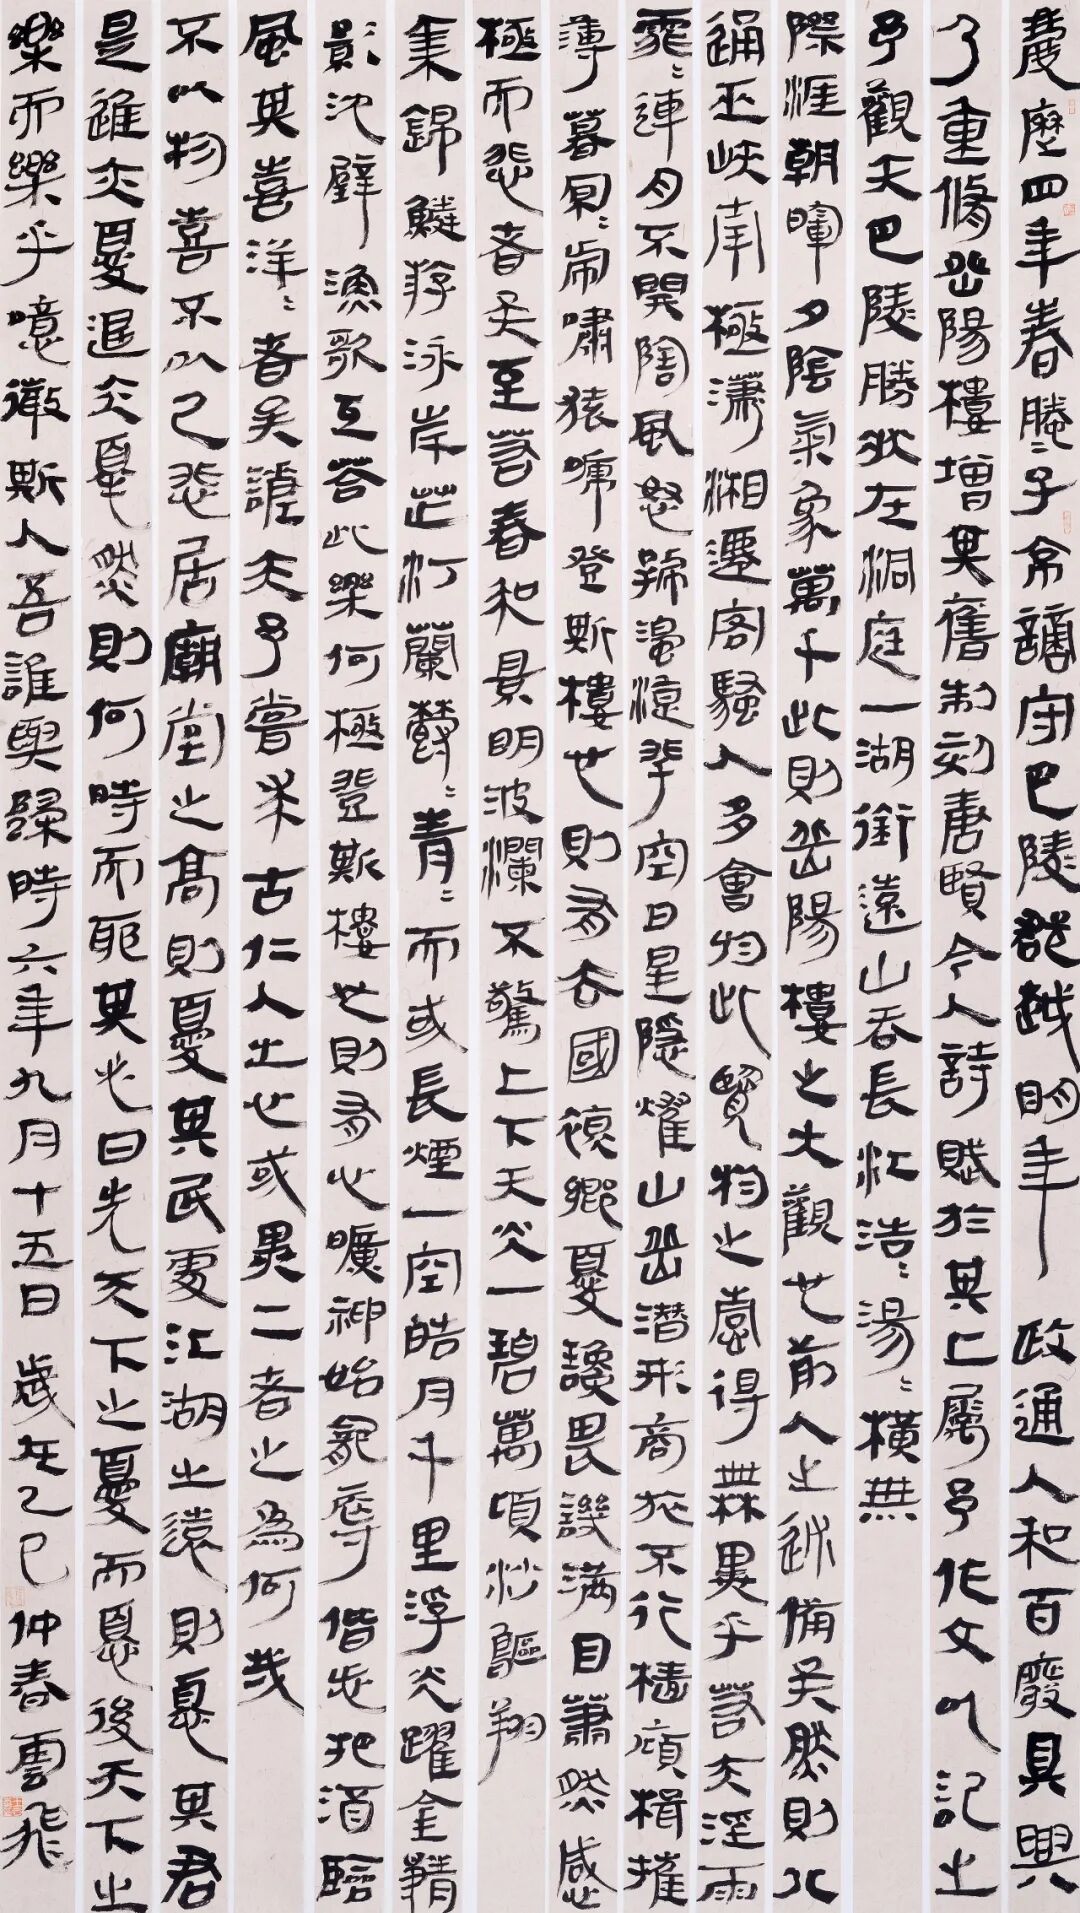 慶歷四年春滕〻子京謫守巴陵郡越明年政通人和百廢具興
乃重修岳陽樓增其舊制刻唐賢今人詩賦於其上屬予作文以記之
予觀夫巴陵勝狀在洞庭一湖銜遠山吞長江浩〻湯〻橫無
際涯朝暉夕陰氣象萬千此則岳陽樓之大觀也前人之述備矣然則北
通巫峽南極瀟湘遷客騷人多會於此覽物之意得無異乎若夫淫雨
霏〻連月不開陰風怒號濁浪排空日星隱耀山岳潛形商旅不行檣傾楫摧
薄暮冥〻虎嘯猿啼登斯樓也則有去國懷鄉憂讒畏譏滿目蕭然感
極而悲者矣至若春和景明波瀾不驚上下天光一碧萬頃沙鷗翔
集錦鱗游泳岸芷汀蘭鬱〻青〻而或長煙一空皓月千里浮光躍金靜
影沈璧漁歌互答此樂何極登斯樓也則有心曠神怡寵辱偕忘把酒臨
風其喜洋〻者矣嗟夫予嘗求古仁人之心或異二者之為何哉
不以物喜不以己悲居廟堂之高則憂其民處江湖之遠則憂其君
是進亦憂退亦憂然則何時而耶其必曰先天下之憂而憂後天下之
樂而樂乎噫微斯人吾誰與歸時六年九月十五日歲在乙巳仲春雲飛